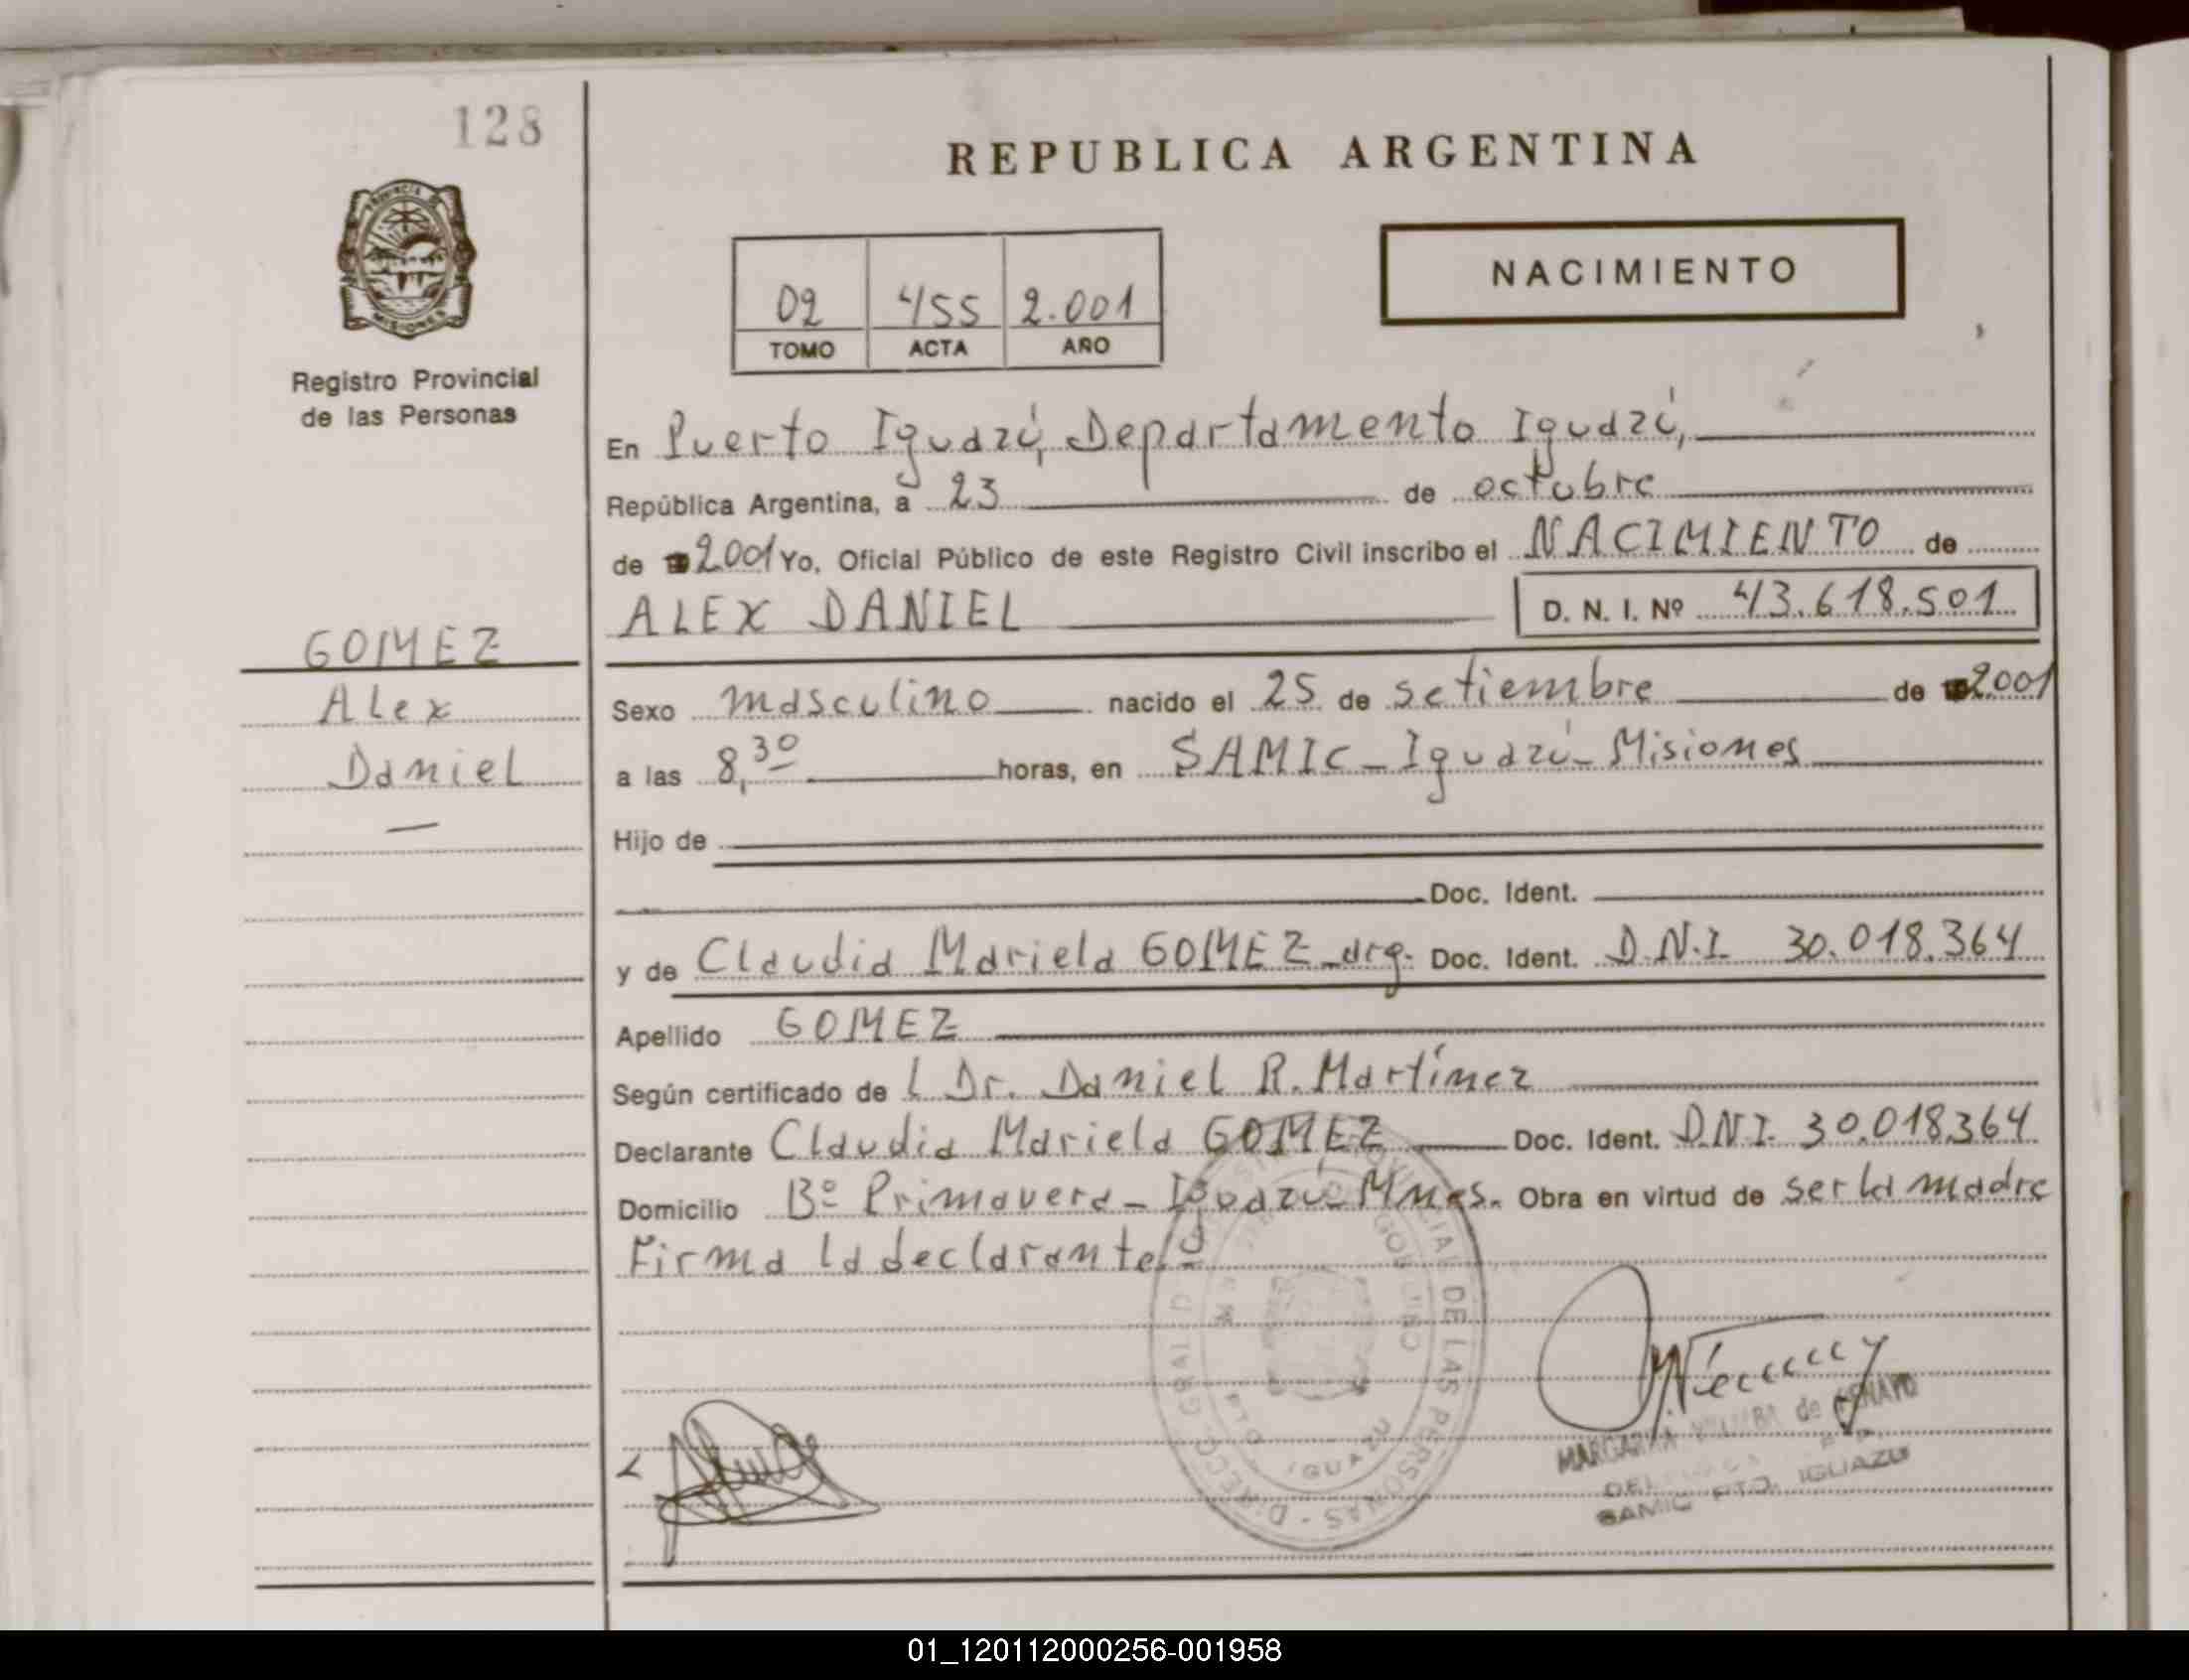 128
REPUBLICA ARGENTINA
PROVINCIA DE
MISIONES
NACIMIENTO
02 455 2.001
TOMO ACTA AÑO
Registro Provincial
de las Personas
En Puerto Iguazú, Departamento Iguazú,
República Argentina, a 23 de octubre
de 2001 Yo, Oficial Público de este Registro Civil inscribo el NACIMIENTO de
ALEX DANIEL D. N. I. Nº 43.618.501
GOMEZ
Alex
Daniel
Sexo masculino nacido el 25 de setiembre de 2001
a las 8,30 horas, en SAMIC - Iguazú - Misiones
Hijo de
Doc. Ident.
y de Claudia Mariela GOMEZ - arg. Doc. Ident. D.N.I. 30.018.364
Apellido GOMEZ
Según certificado de l Dr. Daniel R. Martínez
Declarante Claudia Mariela GOMEZ Doc. Ident. D.N.I. 30.018.364
Domicilio Bº Primavera - Iguazú - Mnes. Obra en virtud de ser la madre
Firma la declarante.-
DE LAS PERSONAS - DIRECC. GRAL. D
PTO. IGUAZU
MARGARITA de
SAMIC PTO. IGUAZU
01_120112000256-001958